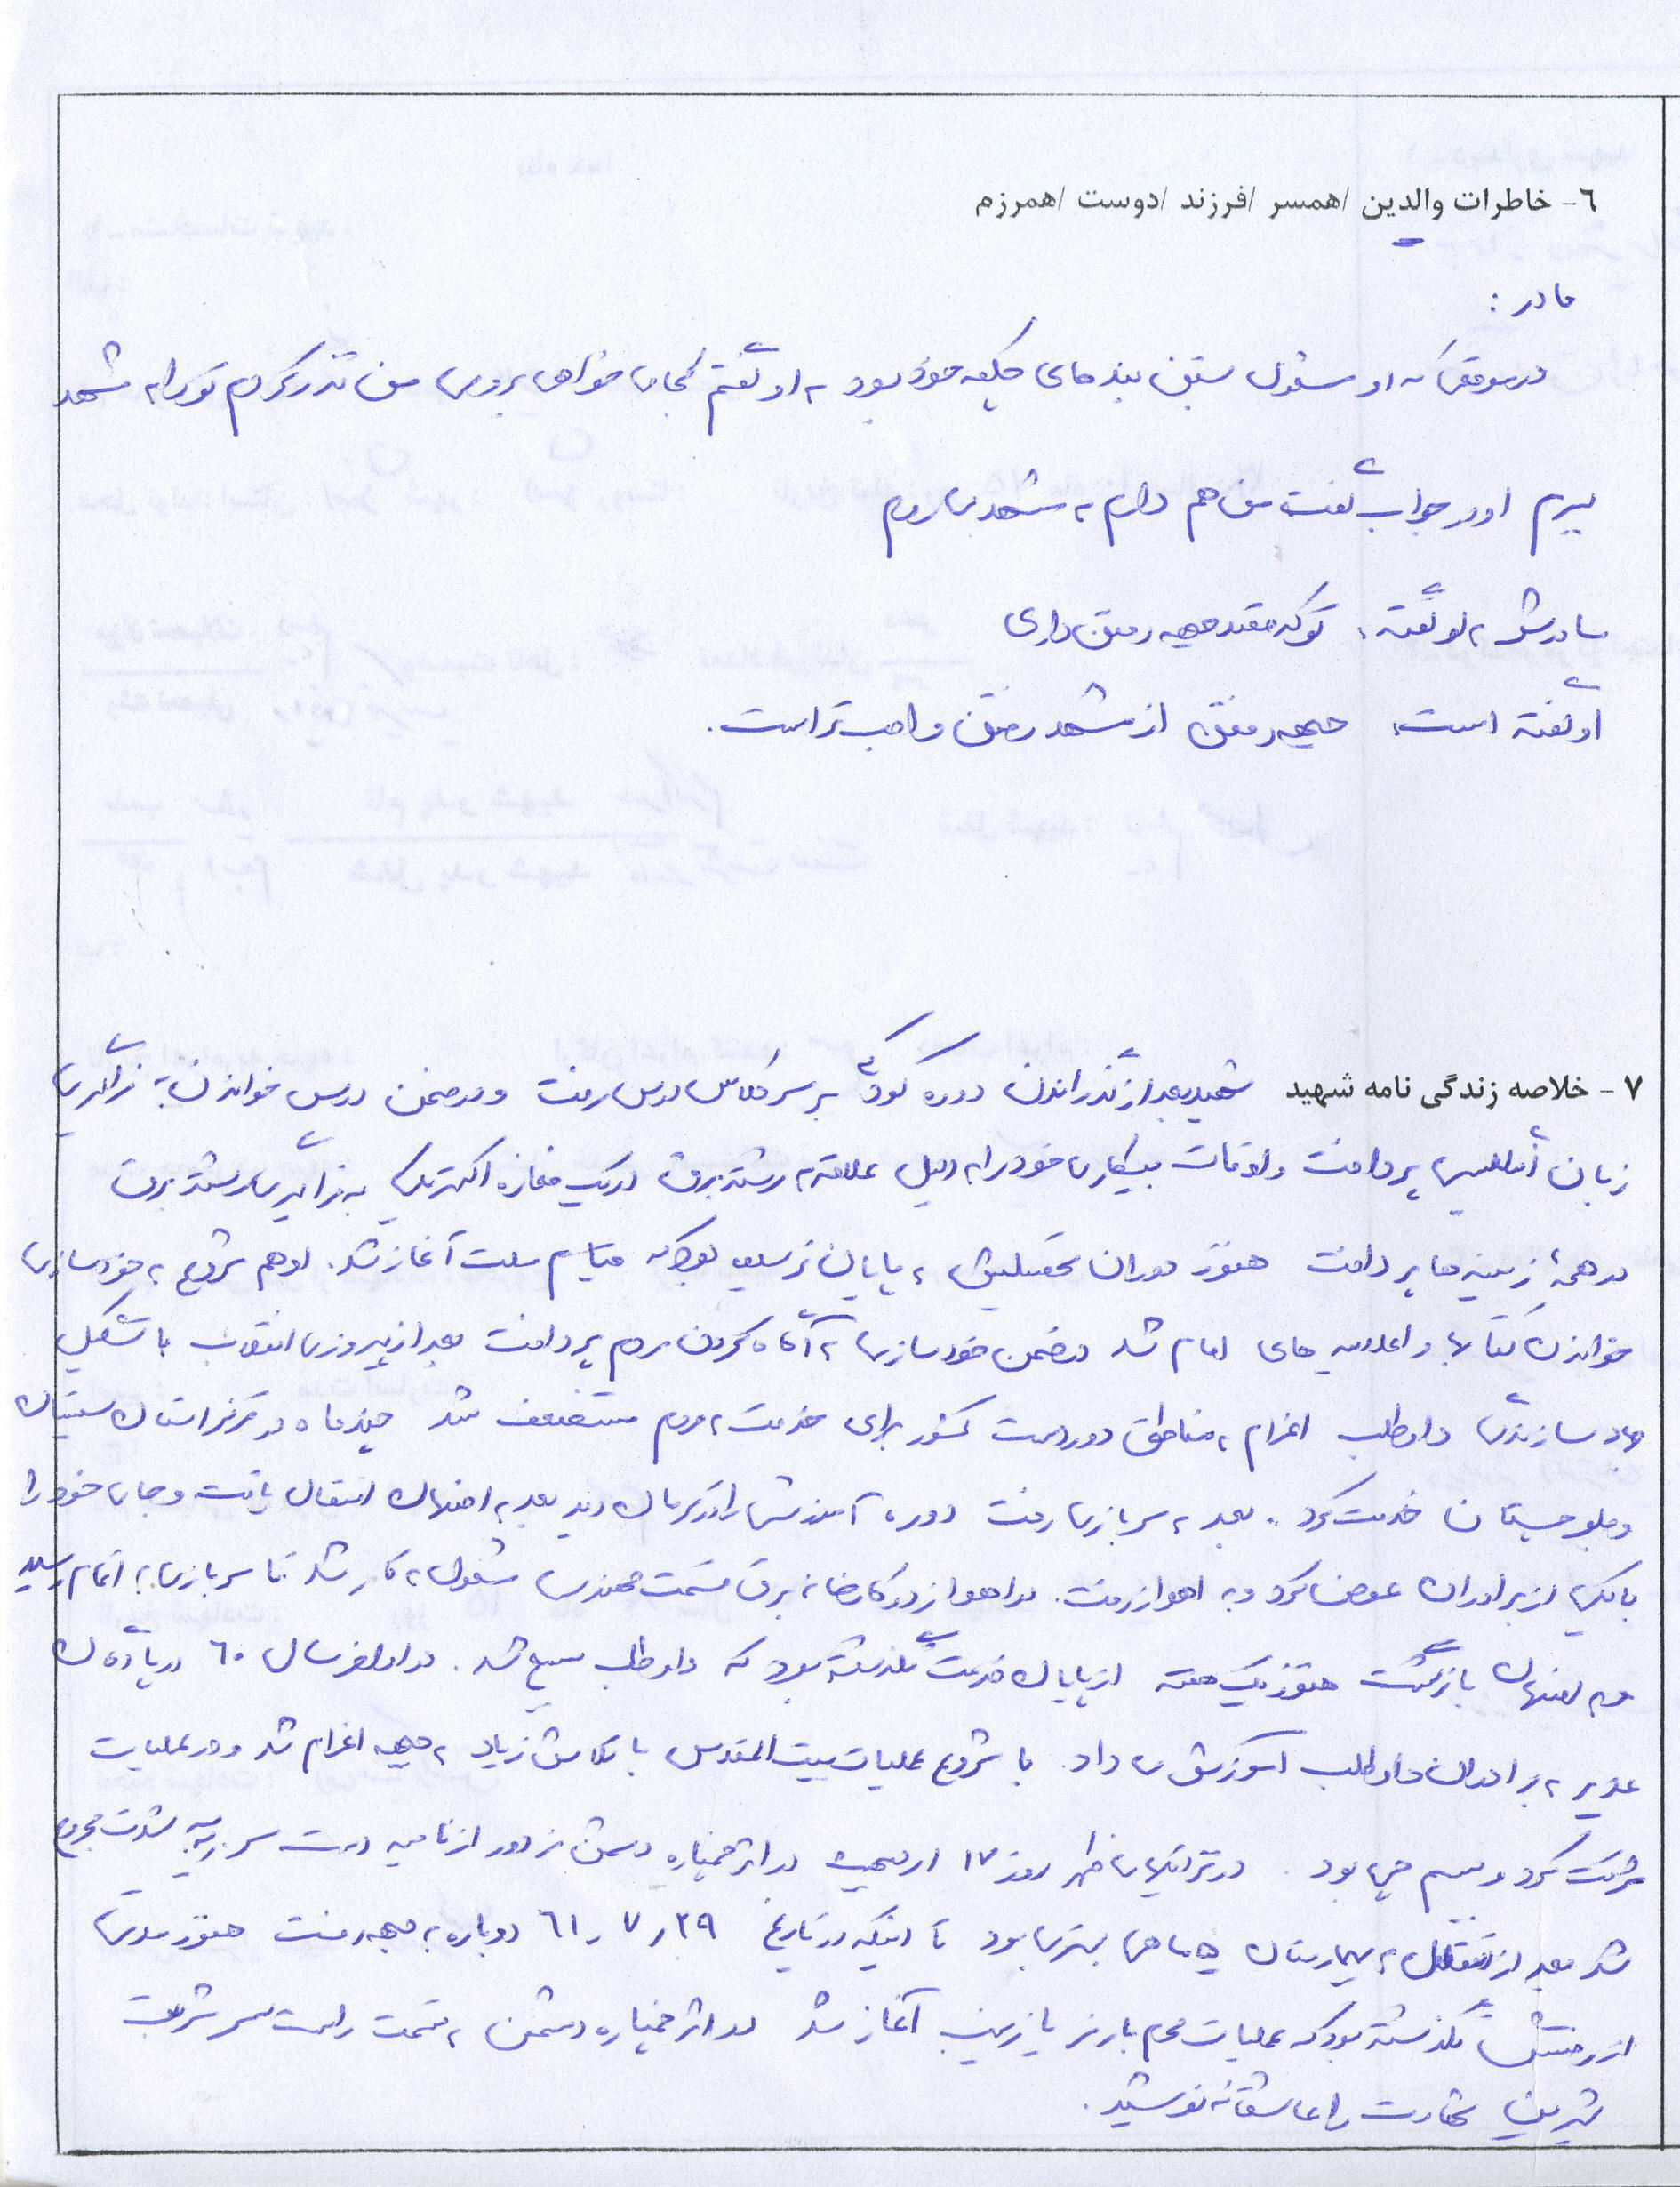 ٦- خاطرات والدین /همسر /فرزند /دوست /همرزم
مادر :
در موقعی که او مشغول بستن بندهای جلیقه خود بود به او گفتم کجا می خواهی بروی من نذر کردم تو را به مشهد
ببرم او در جواب گفت من هم دارم به مشهد می روم
مادرش به او گفته، تو که قصد جبهه رفتن داری
او گفته است، جبهه رفتن از مشهد رفتن واجب تر است.
٧- خلاصه زندگی نامه شهید شهید بعد از گذراندن دوره کودکی بر سر کلاس درس رفت و در ضمن درس خواندن به فراگیری
زبان انگلیسی پرداخت و اوقات بیکاری خود را به دلیل علاقه به رشته برق در یک مغازه الکتریکی به فراگیری رشته برق
در همهٔ زمینه ها پرداخت هنوز دوران تحصیلیش به پایان نرسیده بود که قیام ملت آغاز شد. او هم شروع به خودسازی
خواندن کتابها و اعلامیه های امام شد در ضمن خودسازی به آگاه کردن مردم پرداخت بعد از پیروزی انقلاب با تشکیل
جهاد سازندگی داوطلب اعزام به مناطق دوردست کشور برای خدمت به مردم مستضعف شد چند ماه در مرکز استان سیستان
و بلوچستان خدمت کرد. بعد به سربازی رفت دوره آموزشی را در کرمان دید بعد به اصفهان انتقال یافت و جای خود را
با یکی از برادران عوض کرد و به اهواز رفت. در اهواز در کارخانه برق قسمت مهندسی مشغول به کار شد تا سربازی به اتمام رسید
و به اصفهان بازگشت هنوز یک هفته از پایان خدمت نگذشته بود که داوطلب بسیج شد. در اواخر سال ٦٠ در پادگان
غدیر به برادران داوطلب آموزش می داد. با شروع عملیات بیت المقدس با تلاش زیاد به جبهه اعزام شد و در عملیات
شرکت کرد و بی سیم چی بود. در نزدیکی های ظهر روز ١٧ اردیبهشت در اثر خمپاره دشمن از ناحیه دست سر به شدت مجروح
شد بعد از انتقال به بیمارستان ماهی بستری بود تا اینکه در تاریخ ٦١,٧,٢٩ دوباره به جبهه رفت هنوز مدتی
از رفتنش نگذشته بود که عملیات محرم با رمز یا زینب آغاز شد در اثر خمپاره دشمن به قسمت راست سر شربت
شیرین شهادت را عاشقانه نوشید.